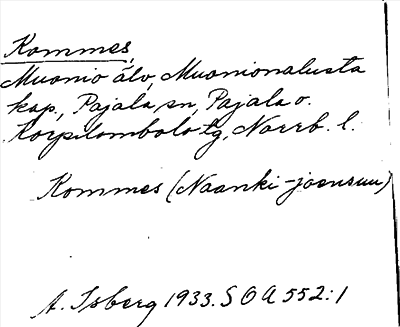 Kommes,
Muonio älv, Muonionalusta
kap., Pajala sn, Pajala o.
Korpilombolo tg, Norrb. l.
Kommes (Naanki-joensuu)
A. Isberg 1933. S O A 552:1